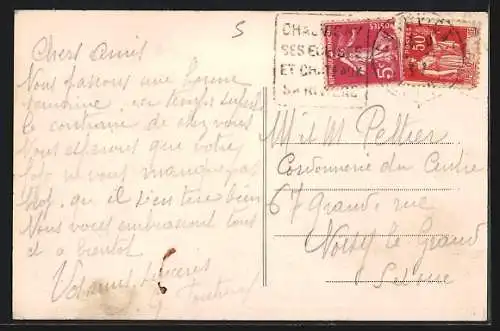 5
CHAUM
SES EGLISES
ET CH
SA RIVIERE
50
5
Chers amis
Nous passons une bonne
semaine, un temps superbe
le contraire de chez vous
Nous espérons que votre
ne vous manque pas
trop, qu'il s'en tire bien
Nous vous embrassons tous
et à bientôt
Vos amis sincères
M et M Peltier
Cordonnerie du Centre
67 Grande rue
Noisy le Grand
Seine